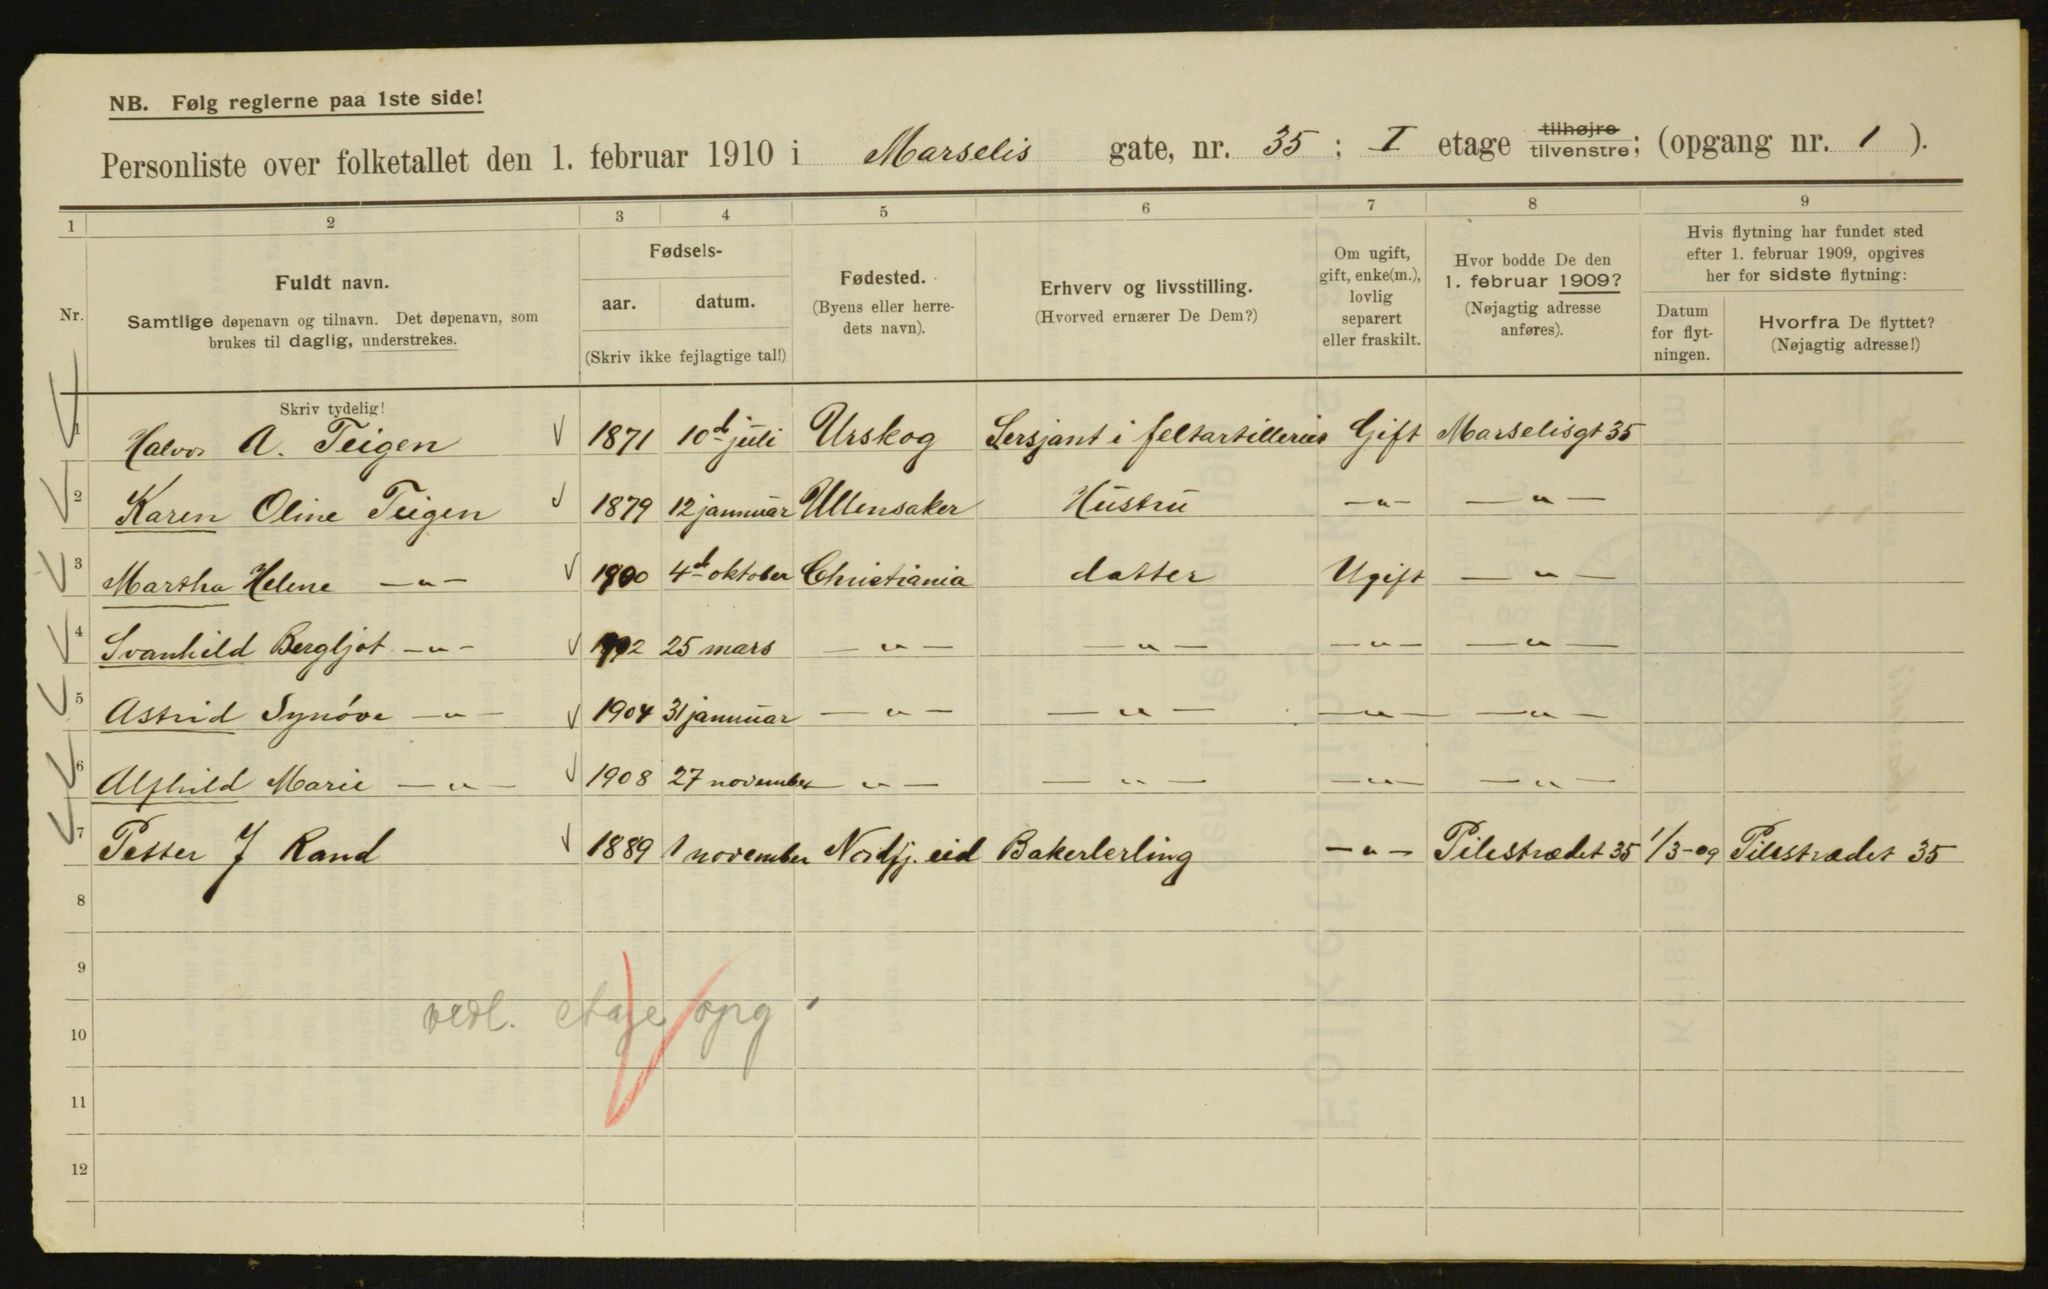 NB. Følg reglerne paa 1ste side!
Personliste over folketallet den 1. februar 1910 i Marselis gate, nr. 35 ; I etage tilhøjre tilvenstre; (opgang nr. 1 ).
1 2 3 4 5 6 7 8 9
Nr.
Fuldt navn.
Samtlige døpenavn og tilnavn. Det døpenavn, som
brukes til daglig, understrekes.
Fødsels-
aar. datum.
(Skriv ikke fejlagtige tal!)
Fødested.
(Byens eller herre-
dets navn).
Erhverv og livsstilling.
(Hvorved ernærer De Dem?)
Om ugift,
gift, enke(m.),
lovlig
separert
eller fraskilt.
Hvor bodde De den
1. februar 1909?
(Nøjagtig adresse
anføres).
Hvis flytning har fundet sted
efter 1. februar 1909, opgives
her for sidste flytning:
Datum
for flyt-
ningen.
Hvorfra De flyttet?
(Nøjagtig adresse!)
Skriv tydelig!
1 Halvor A. Teigen 1871 10d juli Urskog Sersjant i feltartilleriet Gift Marselisgt 35
2 Karen Oline Teigen 1879 12 jannuar Ullensaker Hustru —"— —"—
3 Martha Helene —"— 1900 4d oktober Christiania datter Ugift —"—
4 Svanhild Bergljot —"— 1902 25 mars —"— —"— —"— —"—
5 Astrid Synóve —"— 1904 31 jannuar —"— —"— —"— —"—
6 Alfhild Marie —"— 1908 27 november —"— —"— —"— —"—
7 Petter J Rand 1889 1 november Nordfj. eid Bakerlerling —"— Pilestrædet 35 1/3-09 Pilestrædet 35
8
9
vedl. etage opg
10
11
12